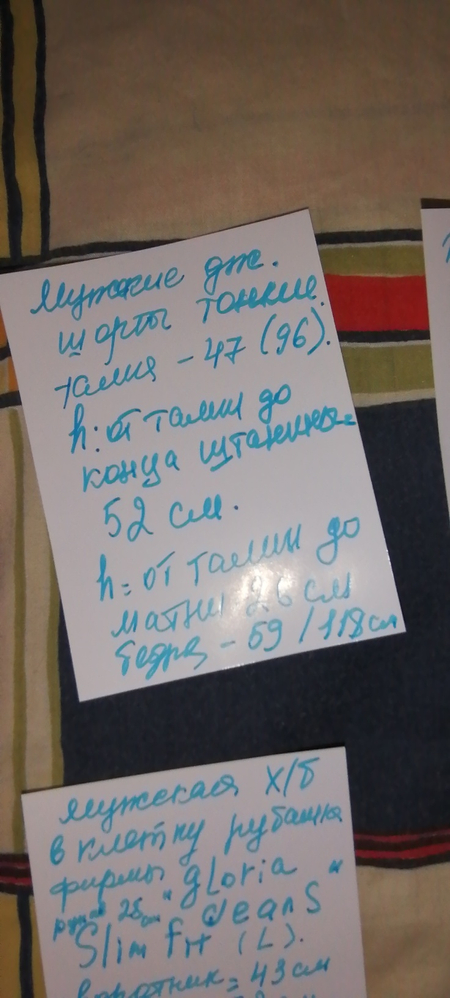 Мужские дж.
шорты тонкие.
талия - 47 (96).
h: от талии до
конца штанины=
52 см.
h = от талии до
матни 26 см
бедра - 59 / 118 см
Мужская х/б
в клетку рубашка
фирмы "gloria
28 см jeans"
Slim fit (L).
воротник = 43 см